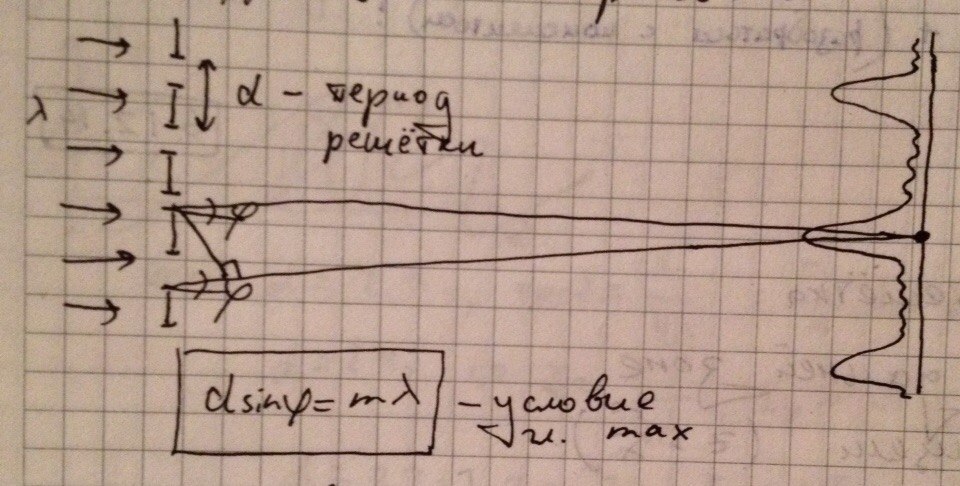 λ
d – период
решётки
φ
φ
d sinφ = mλ – условие
и. max